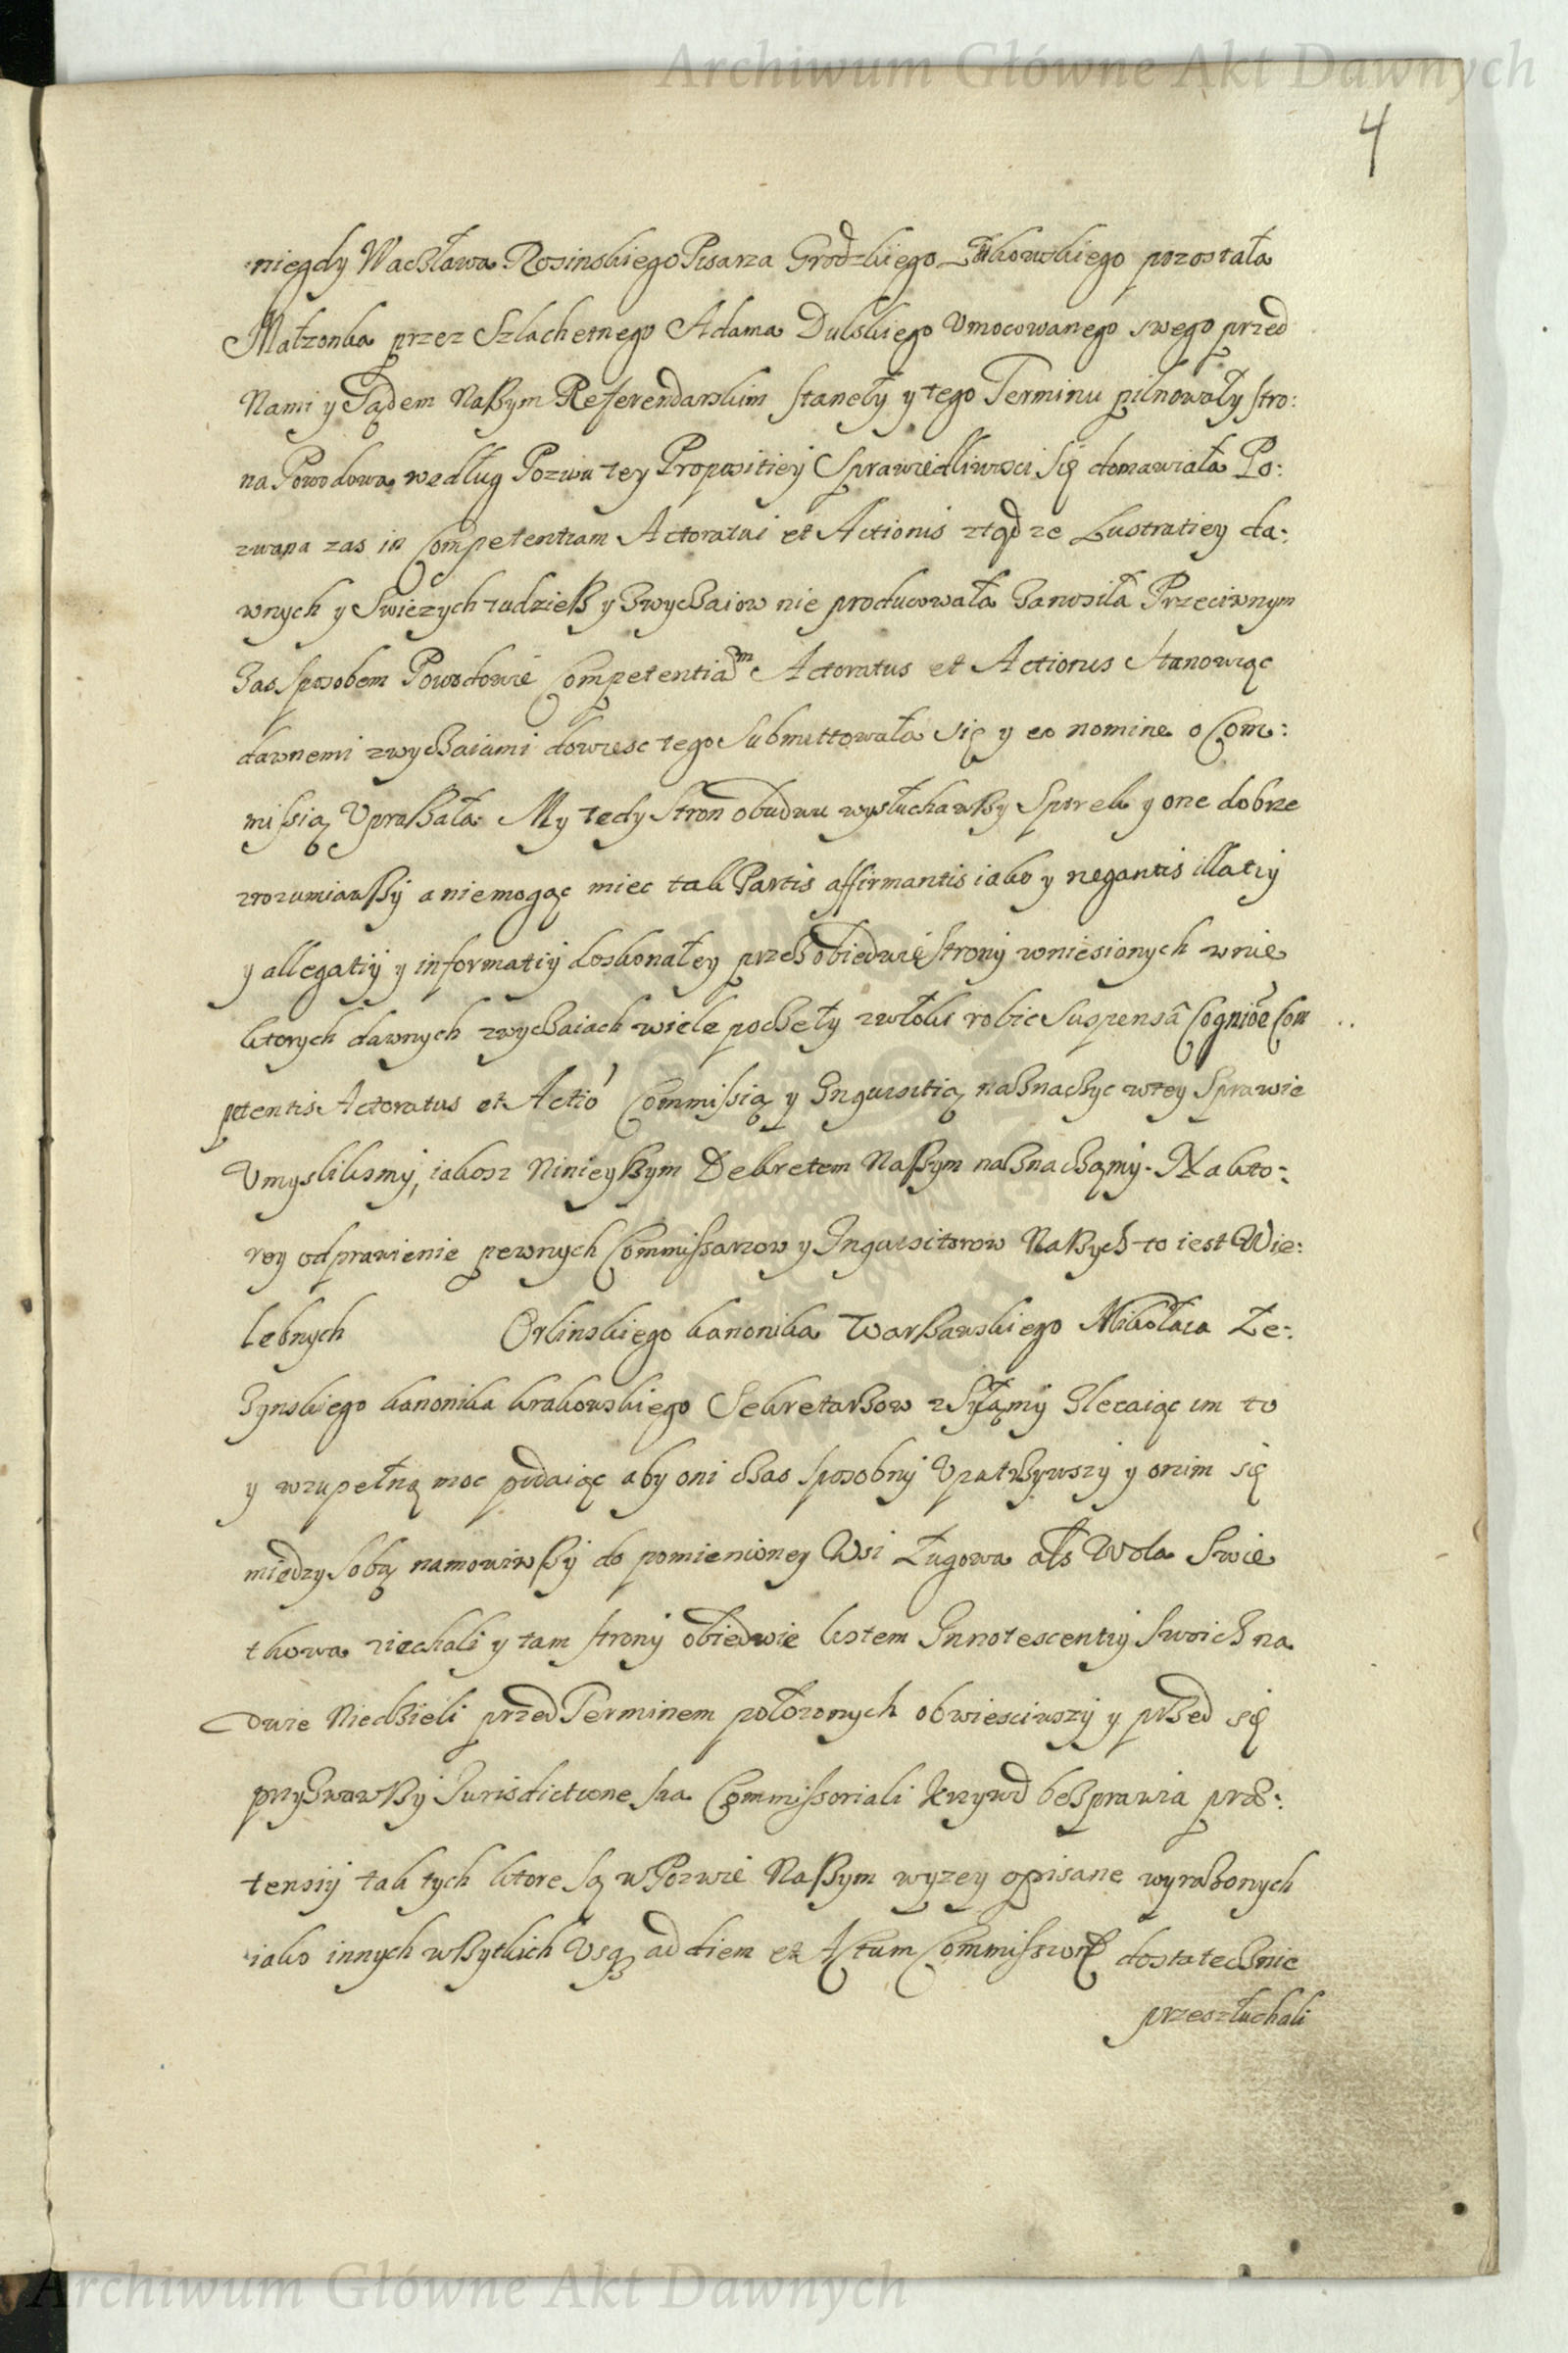 Archiwum Główne Akt Dawnych
4
niegdy Wacława Rosinskiego Pisarza Grodzkiego Łukowskiego pozostała
Małzonka przez Szlachetnego Adama Dulskiego Vmocowanego swego przed
Nami y Sądem Naszym Referendarskim staneły y tego Terminu pilnowały stro:
na Powodowa według Pozwu tey Propositiey Sprawiedliwosci się domawiała Po:
zwana zas in Competentiam Actoratui et Actionis ztąd ze Lustratiey da:
wnych y Swiezych tudziesz y Zwyczaiow nie producowała Zanosiła Przeciwnym
Zas sposobem Powodowie Competentiam Actoratus et Actionis Stanowiąc
dawnemi zwyczaiami dowiesc tego Submittowała się y eo nomine o Com:
missią Vpraszała. My tedy Stron obudwu wysłuchawszy Sporek y one dobrze
zrozumiawszy a niemogąc miec tak Partis affirmantis iako y negantis illatiy
y allegatiy y informatiy doskonałey przez obiedwie strony wniesionych w nie
ktorych dawnych zwyczaiach wiele poczeły zwłoki robic Suspensa Cognioē Com
petentis Actoratus et Actio Commissią y Inquisitią naznaczyc w tey Sprawie
Vmyslilismy, iakosz Ninieyszym Dekretem Naszym naznaczamy. Na kto:
rey odprawienie pewnych Commissarzow y Inquisitorow Naszych to iest Wie:
lebnych Orlinskiego kanonika Warszawskiego Mikołaia Ze:
Zynskiego kanonika krakowskiego Sekretarzow zsyłamy Zlecaiąc im to
y w zupełną moc podaiąc aby oni czas sposobny Vpatrzywszy y onim się
między sobą namowiwszy do pomienioney Wsi Ługowa als Wola Swie
tkowa ziechali y tam strony obiedwie listem Innotescentiy Swoich na
dwie Niedzieli przed Terminem połozonych obwiesciwszy y przed się
przyzwawszy Jurisdictione sua Commissoriali krzywd bezprawia prae:
tensiy tak tych ktore są w Pozwie Naszym wyzey opisane wyrazonych
iako innych wszytkich Vsq ad diem et Actum Commissionis dostatecznie
przesłuchali
Archiwum Główne Akt Dawnych